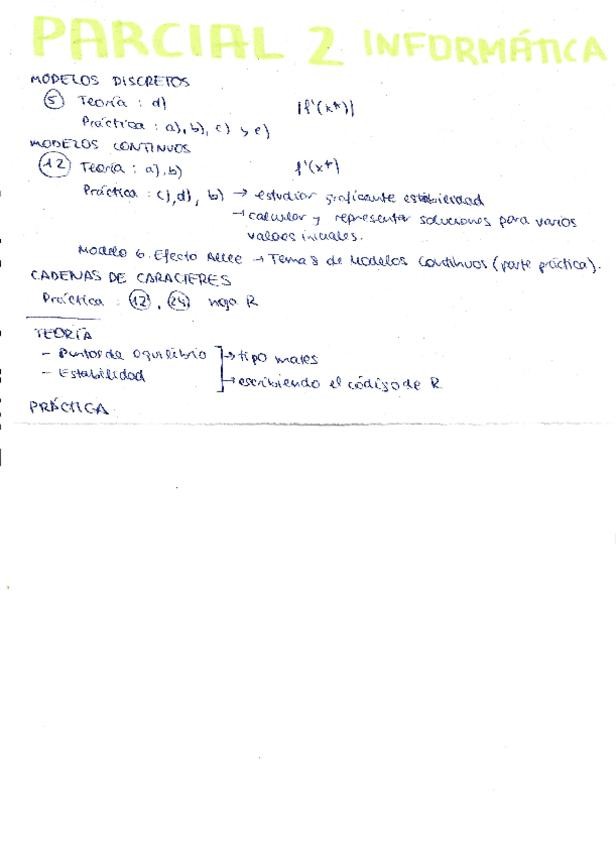 PARCIAL 2 INFORMÁTICA
MODELOS DISCRETOS
⑤ Teoría : d) |f'(x*)|
Práctica : a), b), c) y e)
MODELOS CONTINUOS
⑫ Teoría : a), b) f'(x*)
Práctica : c), d), b) → estudiar graficamte estabilidad
→ calcular y representar soluciones para varios
valores iniciales.
Modelo 6. Efecto Allee → Tema 8 de Modelos Continuos (parte práctica).
CADENAS DE CARACTERES
Práctica : ⑫, ㉔ hoja R
TEORÍA
- Puntos de equilibrio → tipo mates
- Estabilidad → escribiendo el código de R
PRÁCTICA